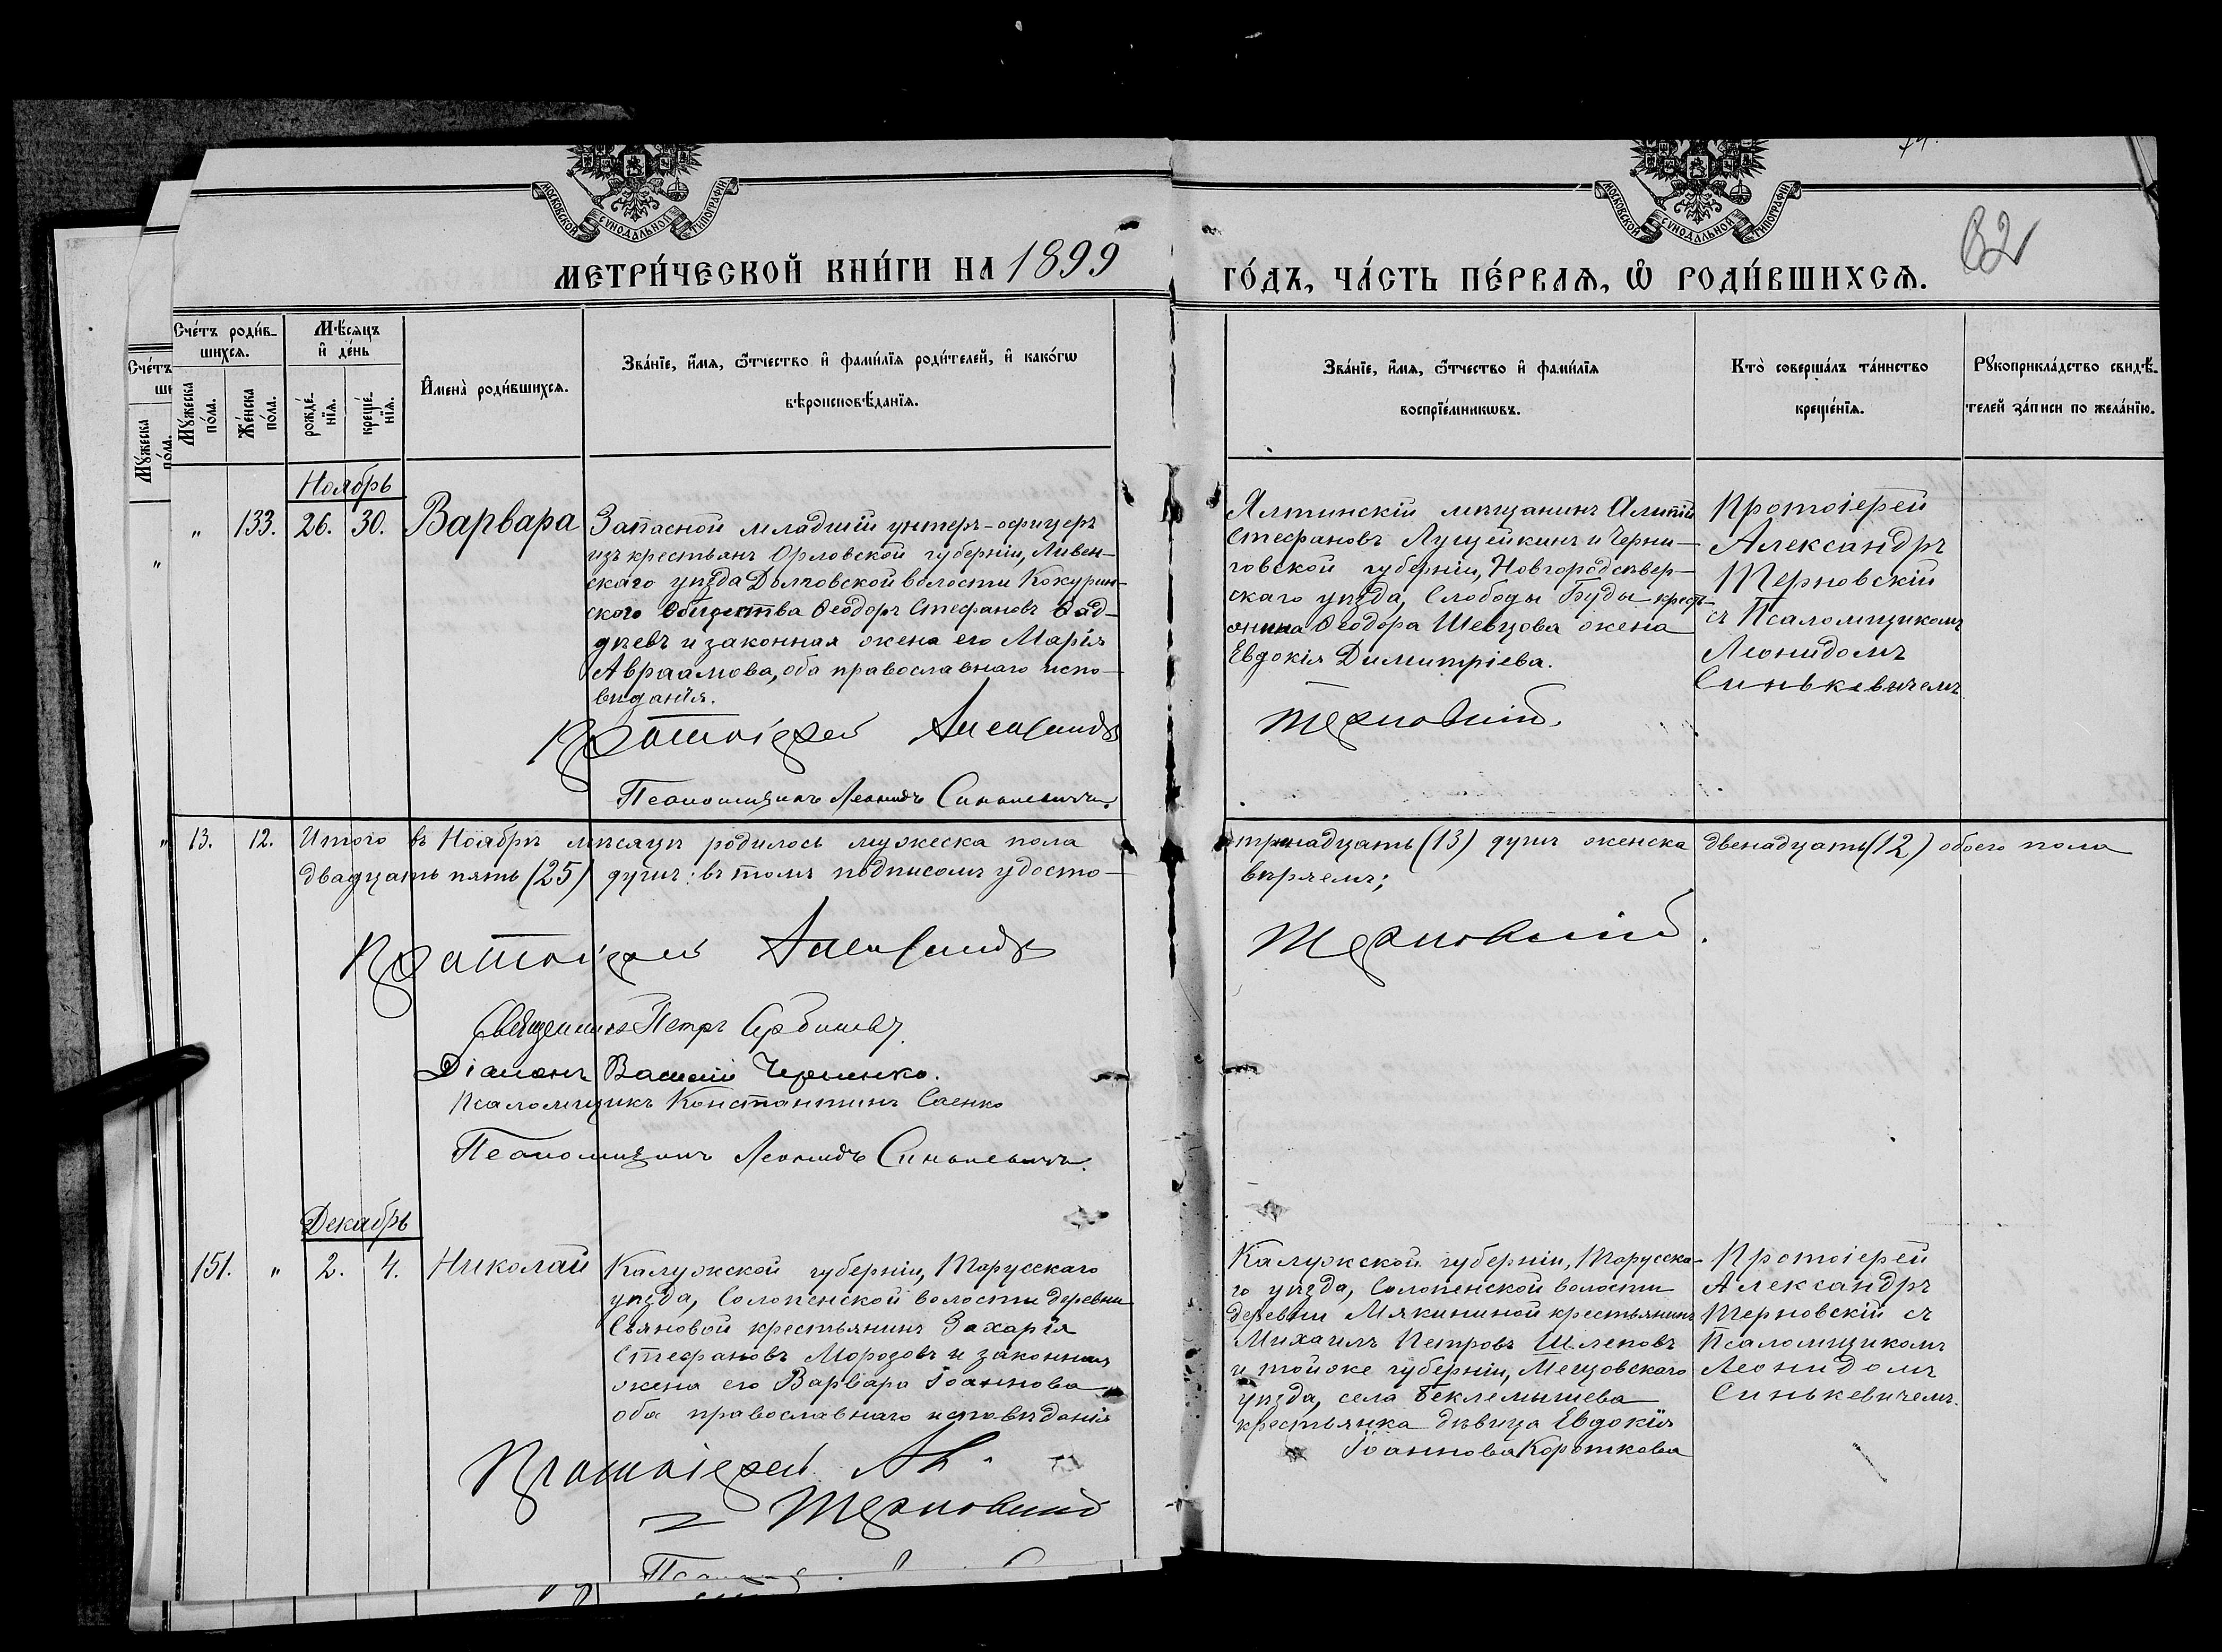 МОСКОВСКОЙ СѴНОДАЛЬНОЙ ТИПОГРАФІИ
МОСКОВСКОЙ СѴНОДАЛЬНОЙ ТИПОГРАФІИ
82
МЕТРИ́ЧЕСКОЙ КНИ́ГИ НА 1899
ГО́ДЪ, ЧА́СТЬ ПЕ́РВАѦ, Ѡ҆ РОДИ́ВШИХСѦ.
Сче́тъ роди́в-
шихсѧ.
Мѣ́сяцъ
и҆ де́нь
Му́жеска
по́ла.
Же́нска
по́ла.
рожде́-
нїѧ.
креще́-
нїѧ.
И҆мена̀ роди́вшихсѧ.
Зва́нїе, и҆́мѧ, ѻ҆́тчество и҆ фами́лїѧ роди́телей, и҆ како́гѡ
вѣроисповѣ́данїѧ.
Зва́нїе, и҆́мѧ, ѻ҆́тчество и҆ фами́лїѧ
воспрїе́мникѡвъ.
Кто̀ соверша́лъ та́инство
креще́нїѧ.
Рꙋкоприкла́дство свидѣ́-
телей за́писи по жела́нїю.
Сче́тъ
Му́жеска
по́ла.
Ноябрь
" 133. 26. 30. Варвара
Запасной младшій унтеръ-офицеръ
изъ крестьянъ Орловской губерніи, Ливен-
скаго уѣзда Долговской волости Кокурин-
ского общества Ѳеодоръ Стефановъ Ѳад-
дѣевъ и законная жена его Марія
Авраамова, оба православнаго испо-
вѣданія.
Протоіерей Александръ
Псаломщикъ Леонидъ Синькевичъ.
Ялтинскій мѣщанинъ Алипій
Стефановъ Лущейкинъ и Черни-
говской губерніи, Новгородсѣвер-
скаго уѣзда, Слободы Буды кресть-
янина Ѳеодора Шевцова жена
Евдокія Димитріева.
Терновскій.
Протоіерей
Александръ
Терновскій
съ Псаломщикомъ
Леонидомъ
Синькевичемъ
13. 12. Итого въ Ноябрѣ мѣсяцѣ родилось мужеска пола
тринадцать (13) душъ женска двенадцать (12) обоего пола
двадцать пять (25) душъ: въ томъ подписомъ удосто-
вѣряемъ;
Протоіерей Александръ
Терновскій.
Священникъ Петръ Сербиновъ.
Діаконъ Василій Черненко.
Псаломщикъ Константинъ Саенко
Псаломщикъ Леонидъ Синькевичъ.
Декабрь
151. " 2. 4. Николай
Калужской губерніи, Тарусскаго
уѣзда, Солопенской волости деревни
Сьяновой крестьянинъ Захарія
Стефановъ Морозовъ и законная
жена его Варвара Іоаннова
оба православнаго исповѣданія
Протоіерей Ал.
Терновскій
Калужской губерніи, Тарусска-
го уѣзда, Солопенской волости
деревни Мякининой крестьянинъ
Михаилъ Петровъ Шлеповъ
и тойже губерніи, Мещовскаго
уѣзда, села Беклемышева
крестьянка дѣвица Евдокія
Іоаннова Короткова
Протоіерей
Александръ
Терновскій съ
Псаломщикомъ
Леонидомъ
Синькевичемъ.